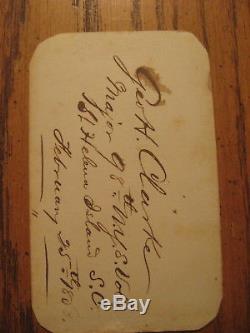 Geo H. Clarke
Major 98th N.Y.S. Vol
St Helena Island S.C.
February 25th 1863.